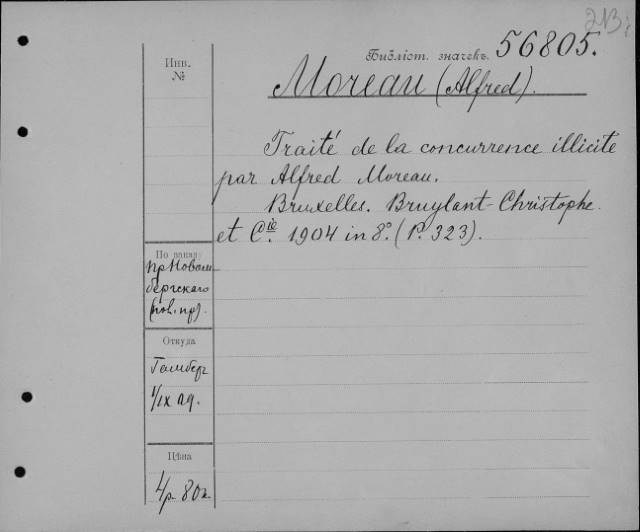 213
Библіот. значекъ 56805.
Moreau (Alfred).
Инв.
№
Traité de la concurrence illicite
par Alfred Moreau.
Bruxelles. Bruylant-Christophe
et Cie. 1904 in 8°. (P. 323).
По заказу
пр Новом-
бергскаго
Откуда
Гамберг
1/IX
Цѣна
4р. 80к.